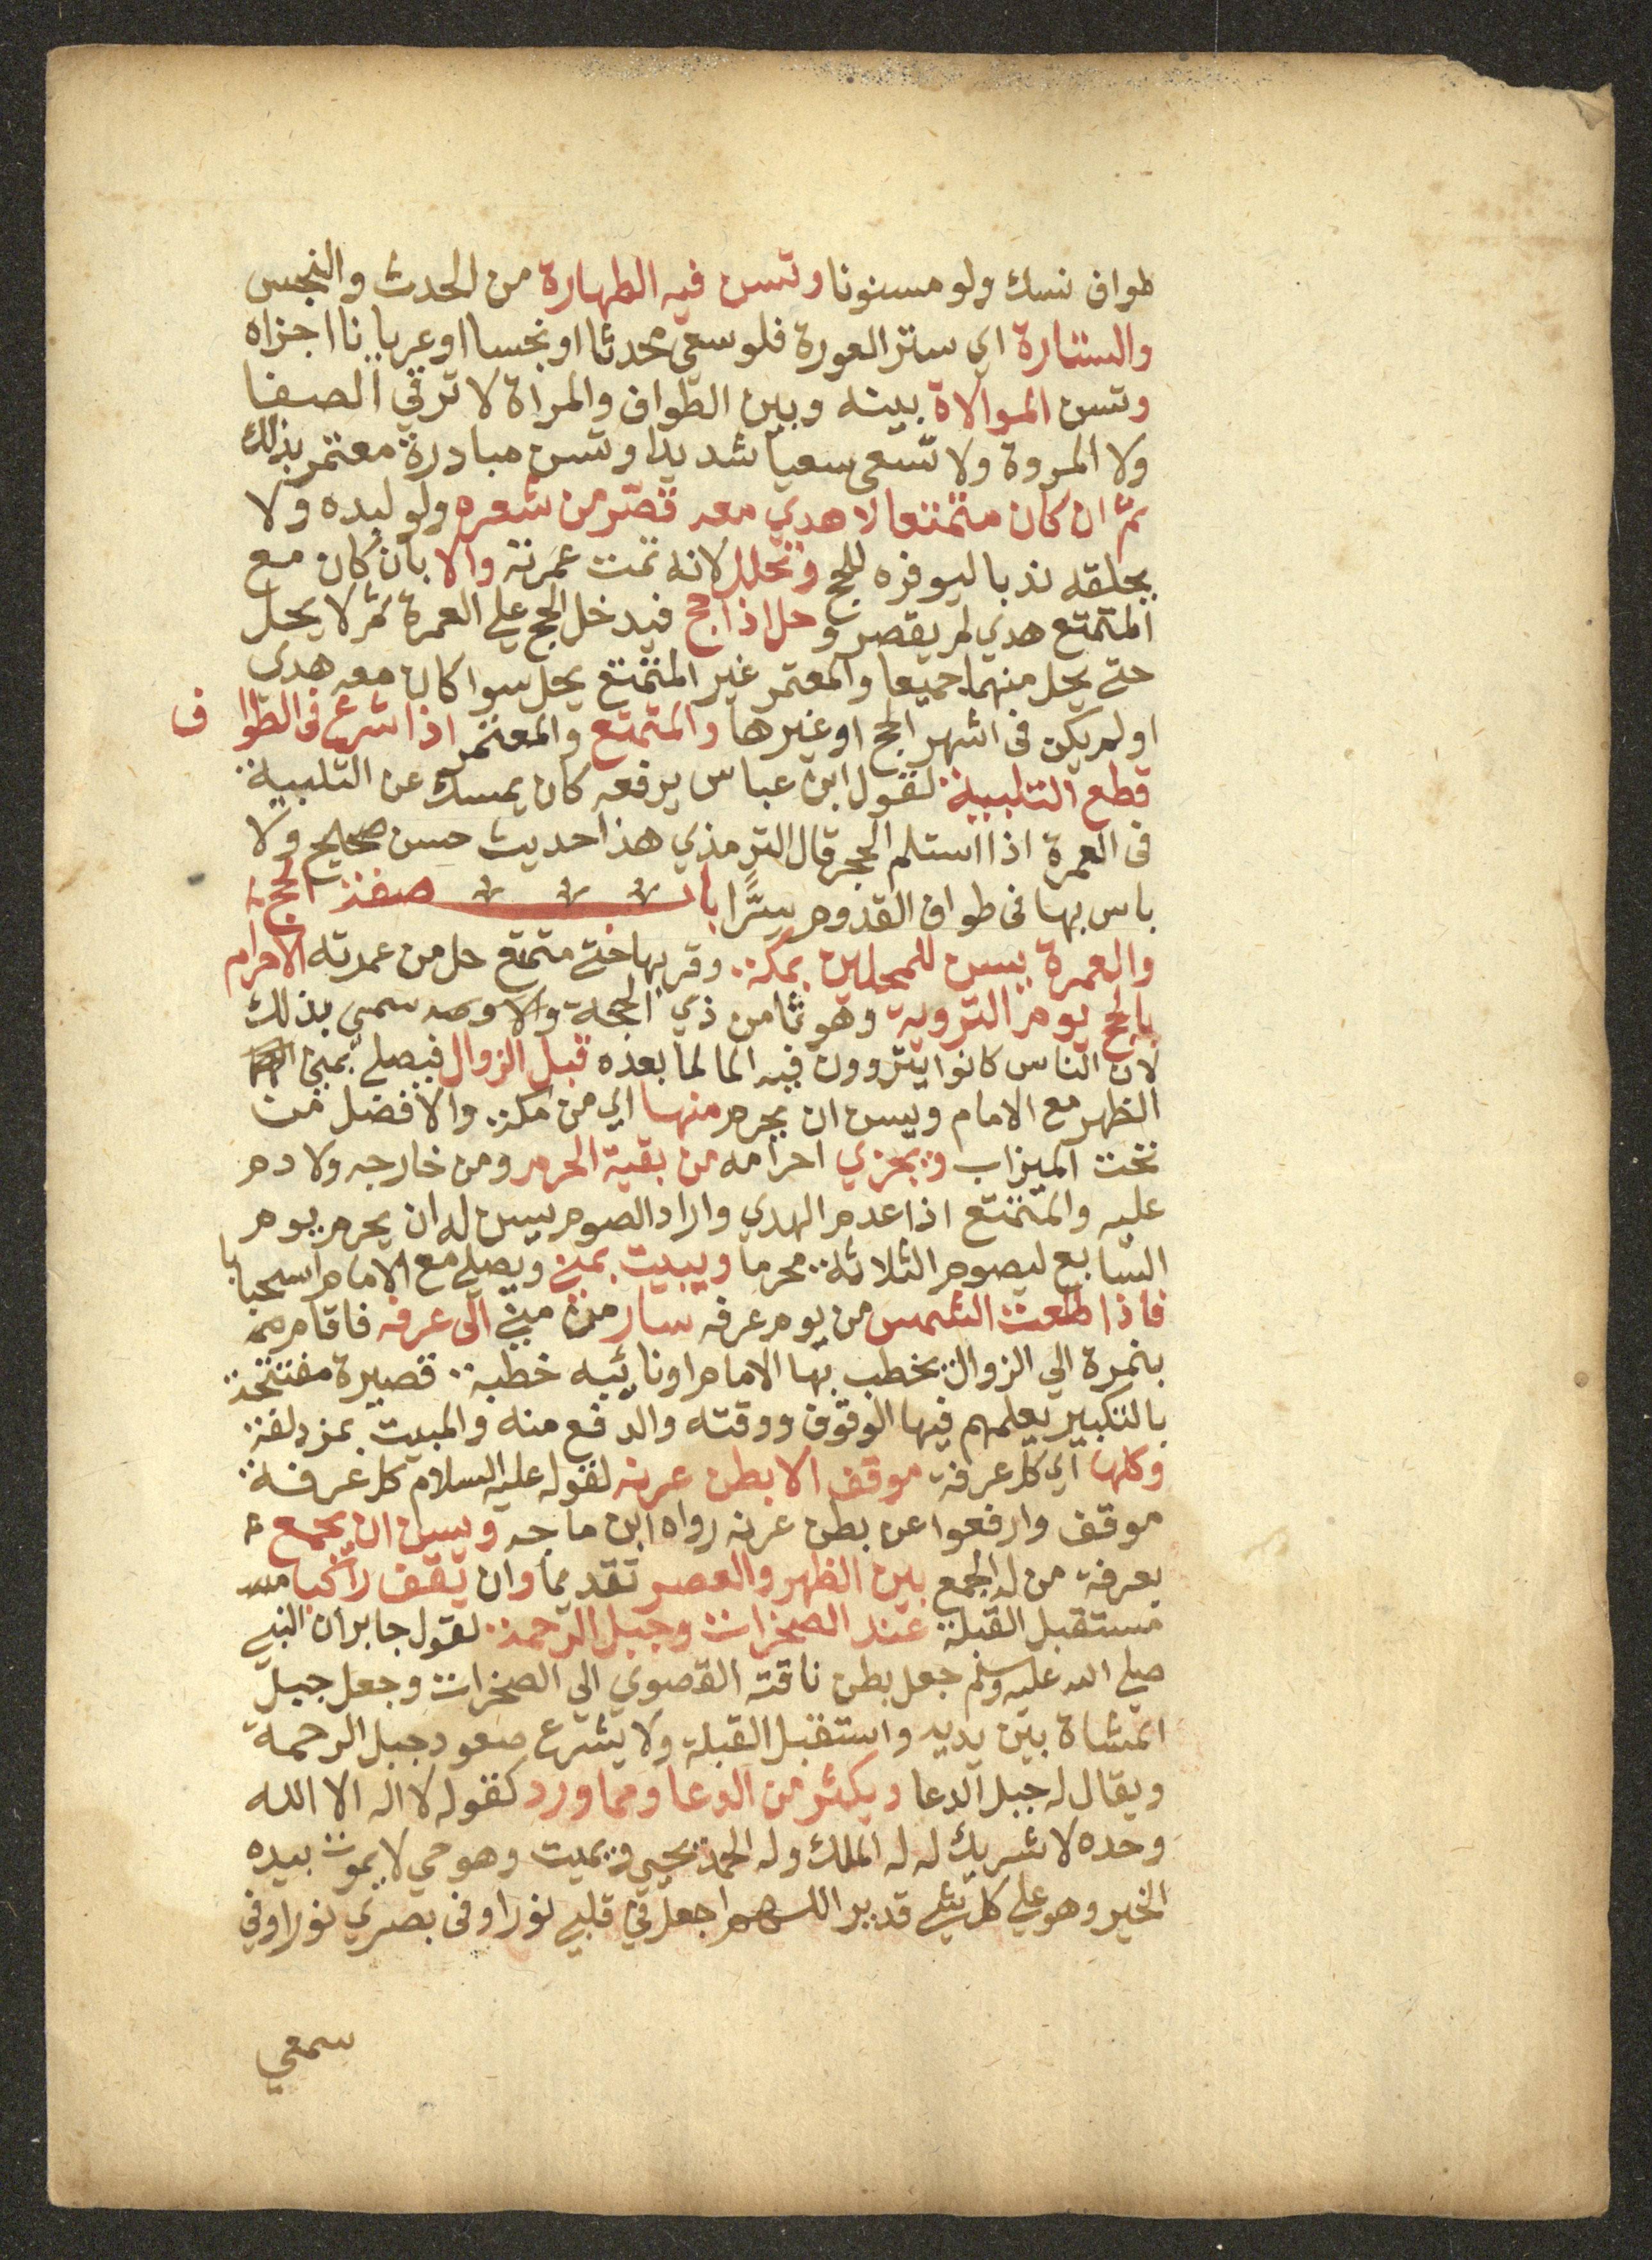 طواف نسك ولو مسنونا وتسن فيه الطهارة من الحدث والنجس
والستارة اي ستر العورة فلو سعى محدثا او نجسا او عريانا اجزاه
وتسن الموالاة بينه وبين الطواف والمراة لا ترقي الصفا
ولا المروة ولا تسعى سعيا شديدا وتسن مبادرة معتمر بذلك
ثم ان كان متمتعا لا هدي معه قصر من شعره ولو لبده ولا
يحلقه ندبا ليوفره للحج وتحلل لانه تمت عمرته والا بان كان مع
المتمتع هدي لم يقصر وحل اذا حج فيدخل الحج علي العمرة ثم لا يحل
حتى يحل منهما جميعا والمعتمر غير المتمتع يحل سوا كان معه هدي
او لم يكن فى اشهر الحج او غيرها والمتمتع والمعتمر اذا شرع فى الطواف
قطع التلبية لقول ابن عباس يرفعه كان يمسك عن التلبية
فى العمرة اذا استلم الحجر قال الترمذي هذا حديث حسن صحيح ولا
باس بها فى طواف القدوم سرًّا باب صفة الحج
والعمرة يسن للمحلين بمكة وقربها حتى متمتع حل من عمرته الاحرام
بالحج يوم التروية وهو ثامن ذي الحجة والاوصه سمي بذلك
لان الناس كانوا يتروون فيه الما لما بعده قبل الزوال فيصلي بمنى
الظهر مع الامام ويسن ان يحرم منها اي من مكة والافضل من
تحت الميزاب ويجزي احرامه من بقية الحرم ومن خارجه ولا دم
عليه والمتمتع اذا عدم الهدي واراد الصوم يسن له ان يحرم يوم
السابع ليصوم الثلاثة محرما ويبيت بمنى ويصلي مع الامام استحبابا
فاذا طلعت الشمس من يوم عرفه سار من منى الى عرفه فاقام منه
بنمرة الي الزوال يخطب بها الامام او نائبه خطبة قصيرة مفتتحة
بالتكبير يعلمهم فيها الوقوف ووقته والدفع منه والمبيت بمزدلفة
وكلها اي كل عرفة موقف الا بطن عرنه لقوله عليه السلام كل عرفة
موقف وارفعوا عن بطن عرنه رواه ابن ماجه ويسن ان يجمع
بعرفة من له الجمع بين الظهر والعصر تقديما وان يقف راكبا
مستقبل القبلة عند الصخرات وجبل الرحمة لقول جابر ان النبي
صلى الله عليه وسلم جعل بطن ناقته القصوي الي الصخرات وجعل جبل
المشاة بين يديه واستقبل القبلة ولا يشرع صعود جبل الرحمة
ويقال له جبل الدعا ويكثر من الدعا ومما ورد كقوله لا اله الا الله
وحده لا شريك له له الملك وله الحمد يحيي ويميت وهو حي لا يموت بيده
الخير وهو على كل شي قدير اللهم اجعل في قلبي نورا وفى بصري نورا وفي
سمعي